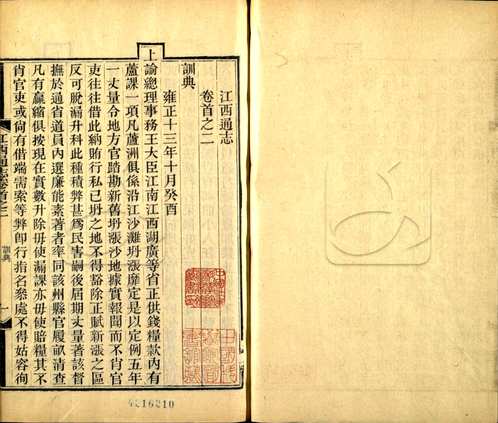 江西通志
卷首之二
訓典
雍正十三年十月癸酉
上諭總理事務王大臣江南江西湖廣等省正供錢糧款內有
蘆課一項凡蘆洲俱係沿江沙灘坍漲靡定是以定例五年
一丈量令地方官踏勘新舊坍漲沙地據實報聞而不肖官
吏往往借此納賄行私已坍之地不得豁除正賦新漲之區
反可脫漏升科此種積弊甚爲民害嗣後屆期丈量著該督
撫於通省道員內選廉能素著者率同該州縣官履畝清查
凡有贏縮俱按現在實數升除毋使漏課亦毋使賠糧其不
肖官吏或尚有借端需索等弊卽行指名叅處不得姑容徇
江西通志卷首之二
訓典
一
4216210